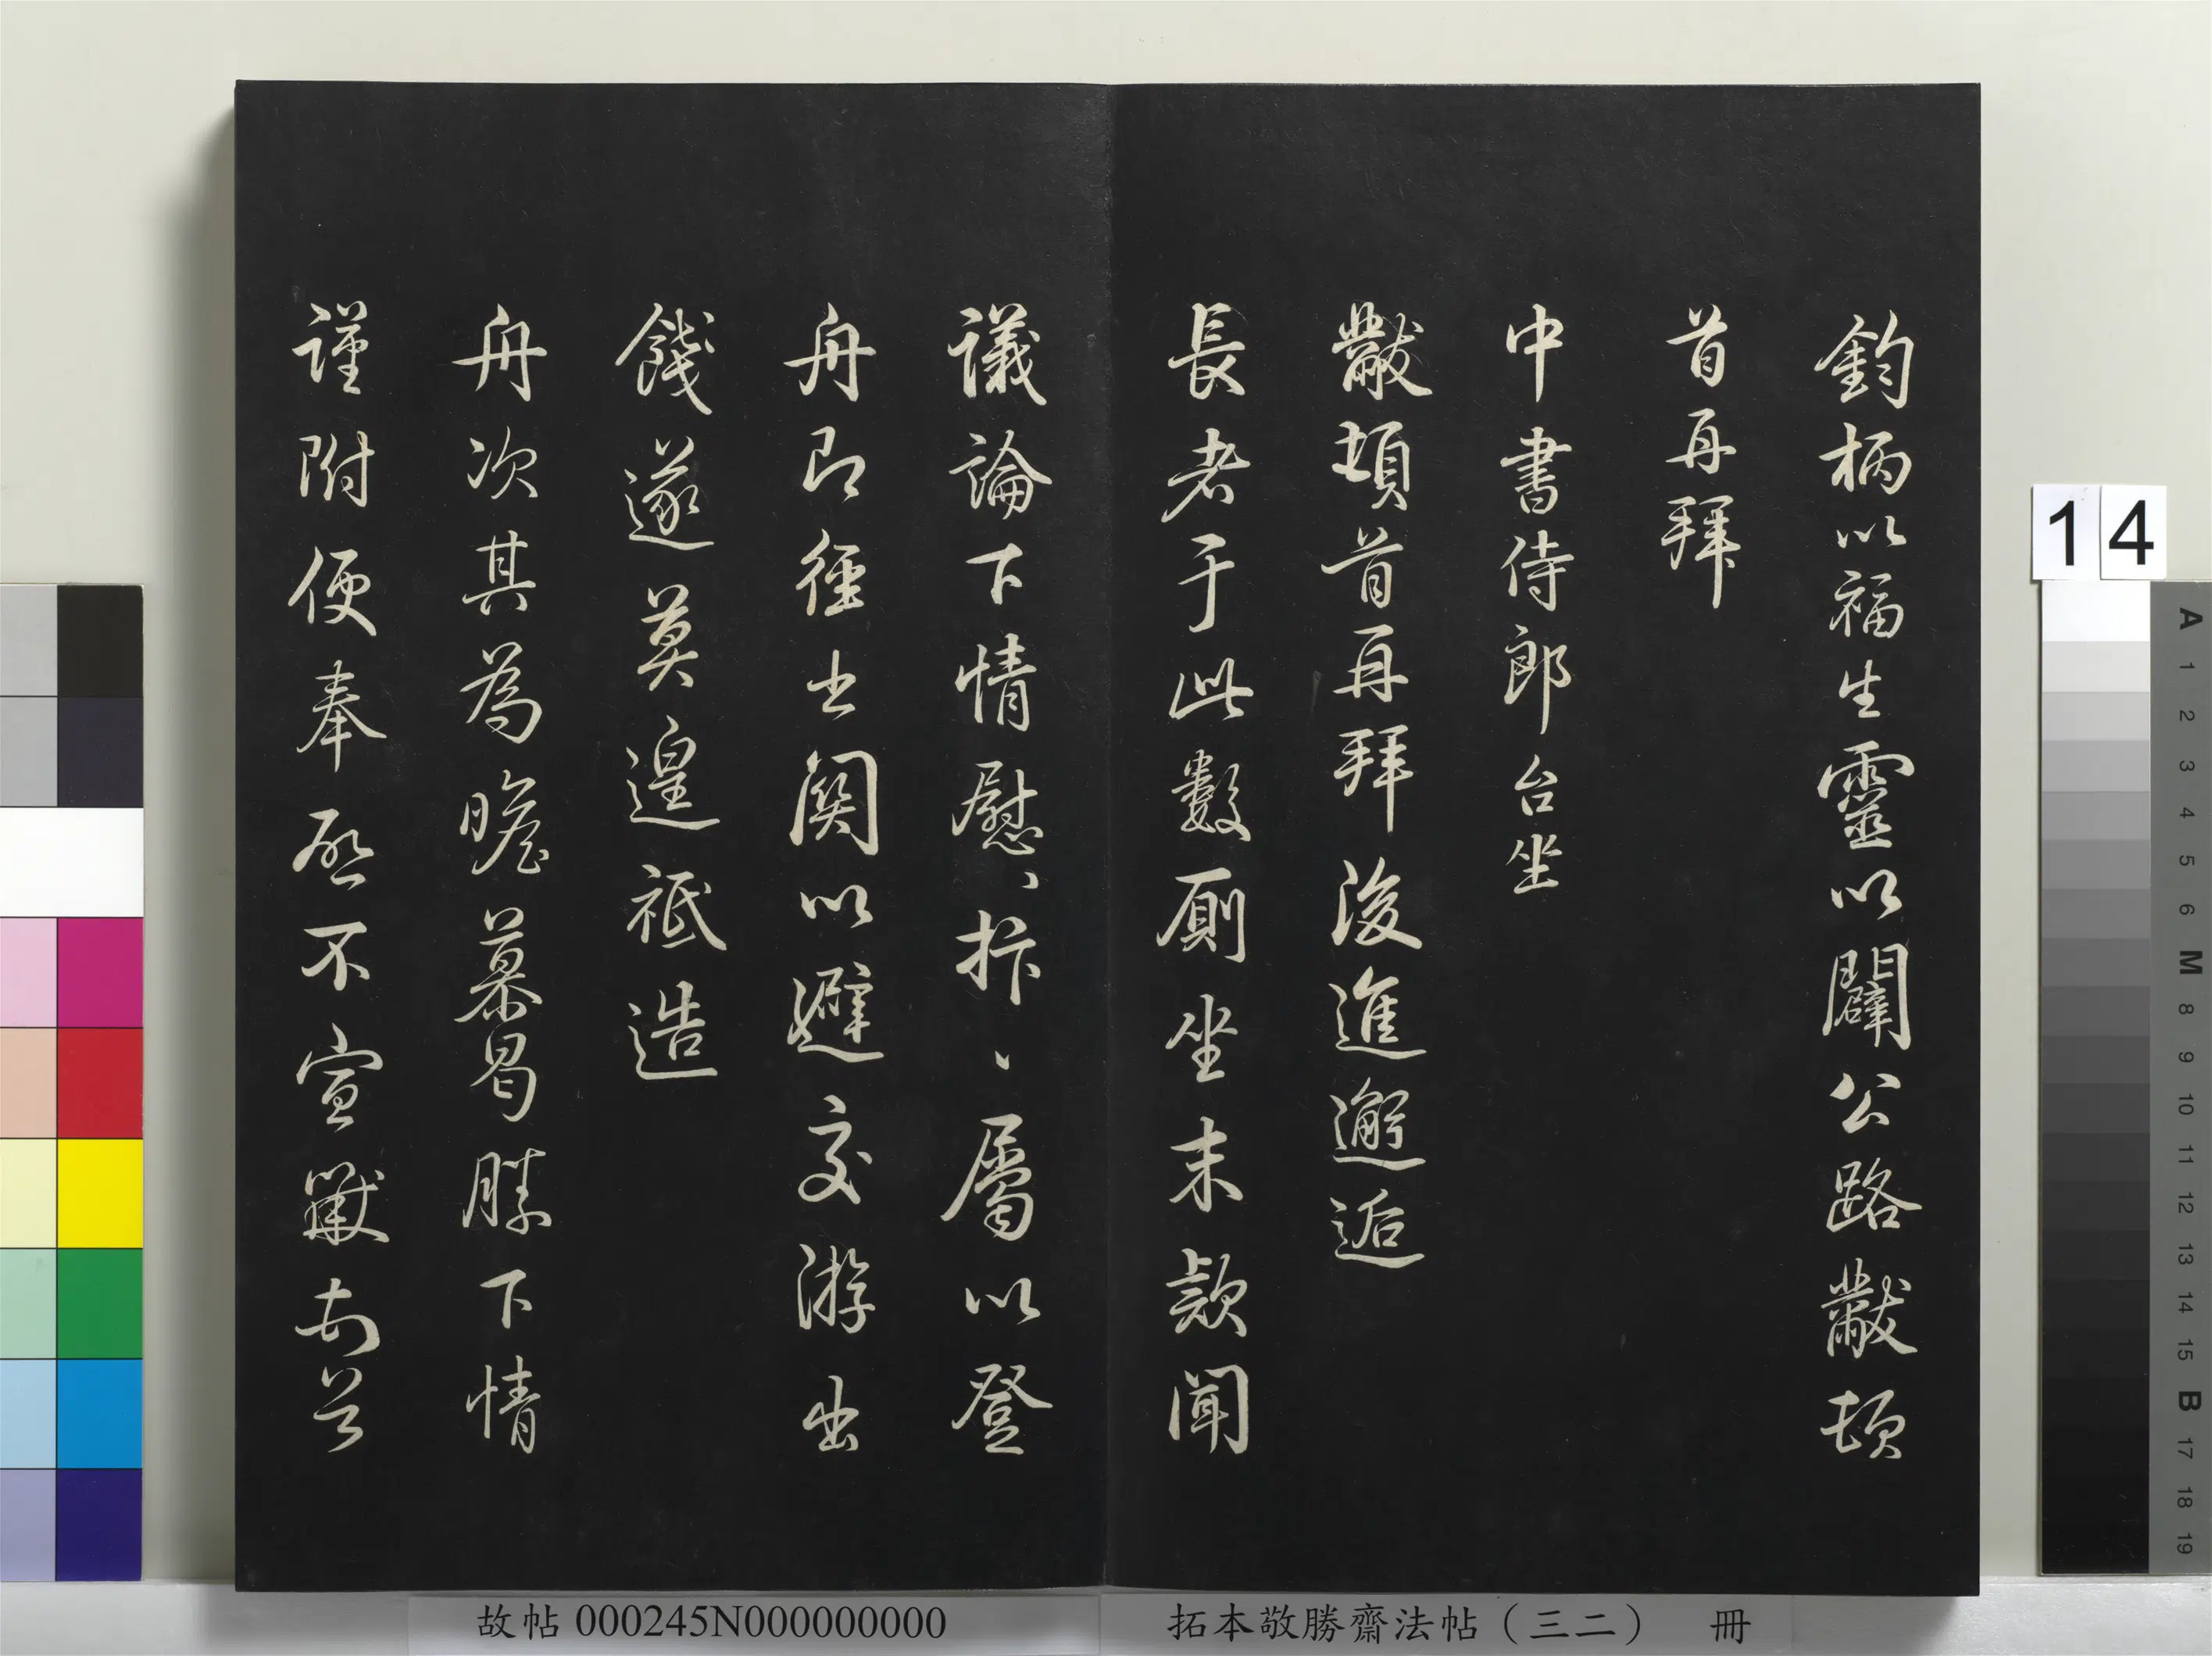 鈞柄以福生靈以闢公路黻頓
首再拜
中書侍郎台坐
黻頓首再拜後進邂逅
長者于此數厠坐末款聞
議論下情慰、抃、屬以登
舟即徑出關以避交游出
餞遂莫遑祗造
舟次其為瞻慕曷勝下情
謹附便奉啟不宣黻
14
A
1
2
3
4
5
6
M
8
9
10
11
12
13
14
15
B
17
18
19
故帖 000245N000000000
拓本敬勝齋法帖（三二） 冊